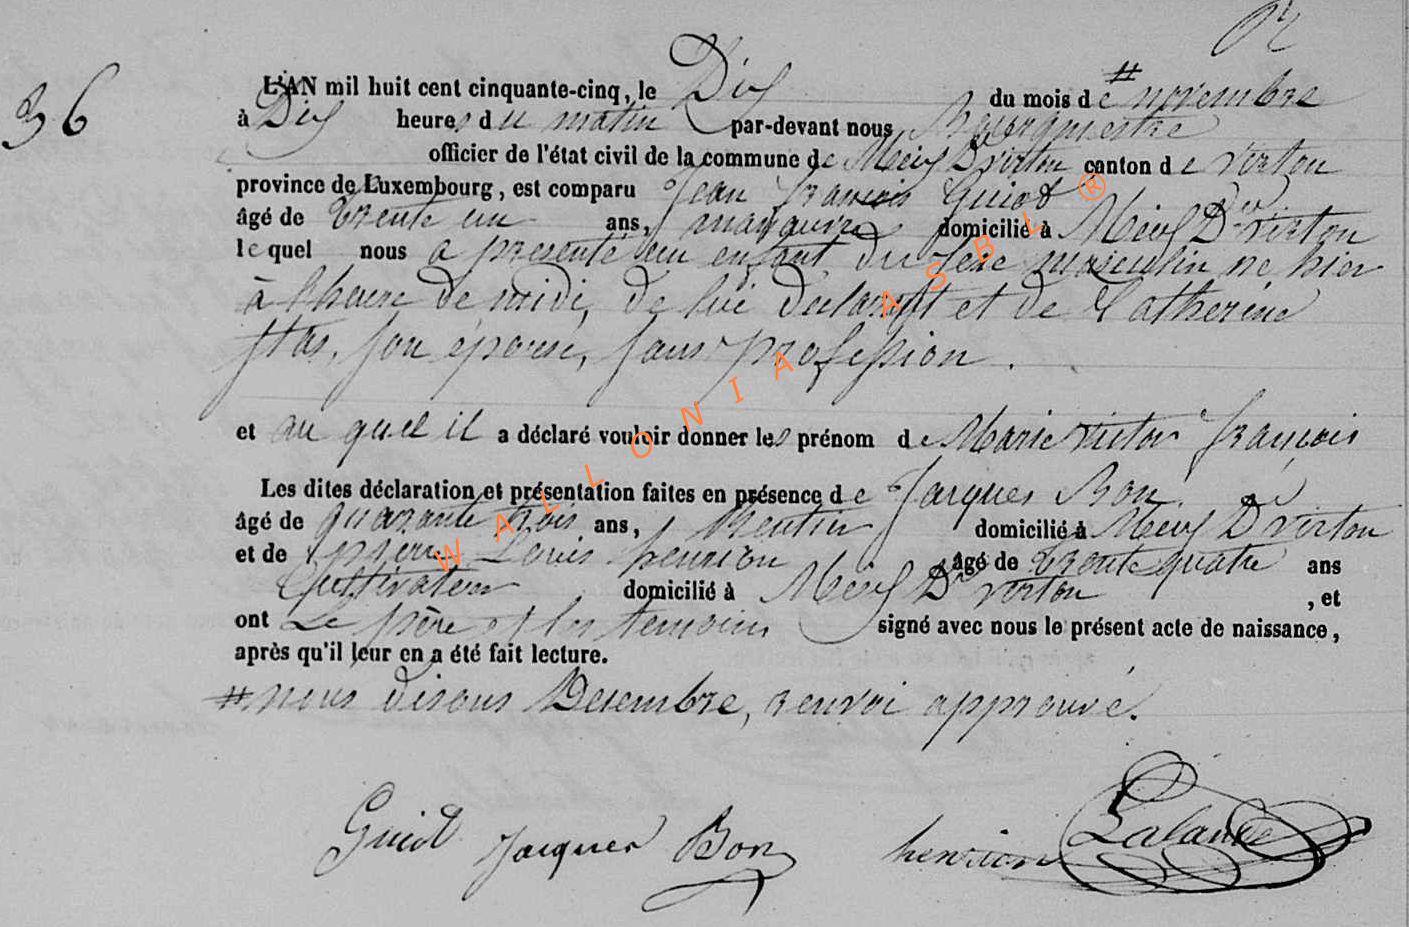 36
L'AN mil huit cent cinquante-cinq, le Dix du mois de # novembre
à Dix heures du matin par-devant nous Bourgmestre
officier de l'état civil de la commune de Meix Dt virton canton de virton
province de Luxembourg, est comparu Jean François Guiot
âgé de trente un ans, domicilié à Meix Dt virton
lequel nous a presenté un enfant du sexe masculin né hier
à l'heure de midi, de lui déclarant et de Catherine
Stas, son épouse, sans profession.
et au quel il a déclaré vouloir donner les prénom de Marie victor françois
Les dites déclaration et présentation faites en présence de Jacques Bon
âgé de quarante trois ans, Rentier domicilié à Meix Dt virton
et de pierre Louis henrion âgé de trente quatre ans
Cultivateur domicilié à Meix Dt virton, et
ont Le père et les temoins signé avec nous le présent acte de naissance,
après qu'il leur en a été fait lecture.
# nous disons Decembre, renvoi approuvé.
Guiot Jacques Bon henrion Lalande
WALLONIA ASBL ®